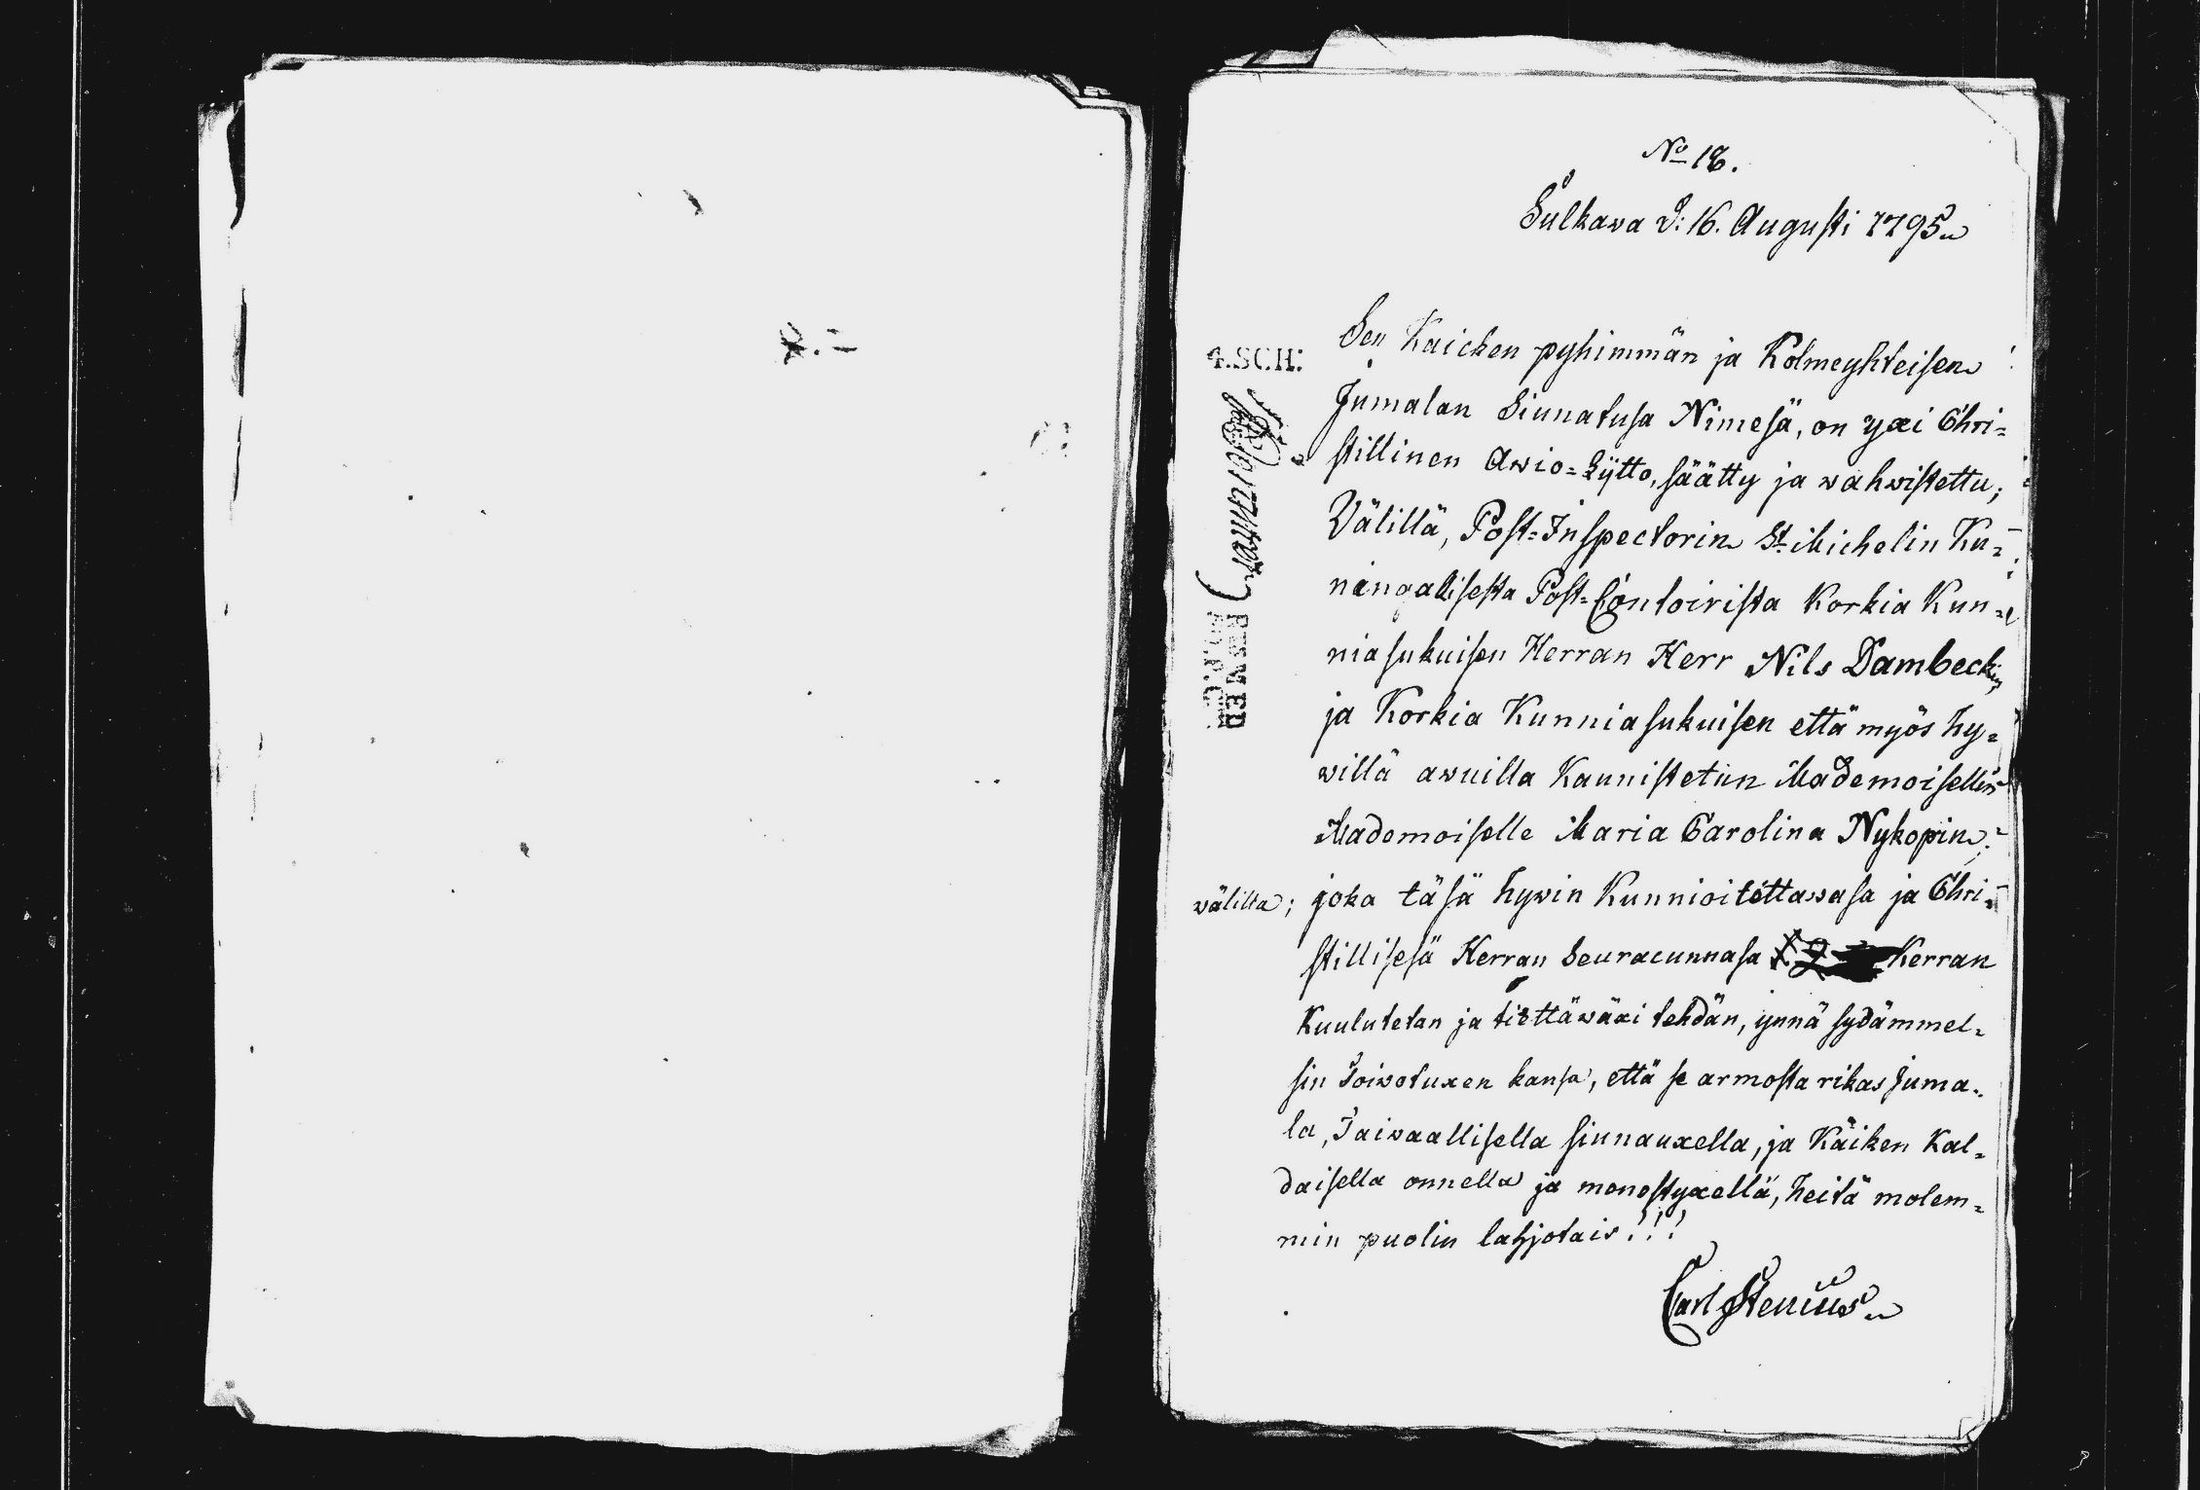 No 18.
Sulkawa d: 16. Augusti 1795.
Sen Kaicken pyhimmän ja Kolmeyhteisen
Jumalan Siunatusa Nimesä, on yxi Chri=
stillinen Awio=Lijtto, säätty ja wahwistettu;
Välillä, Post=Inspectorin St. Michelin Ku=
ningallisesta Post=Contoirista Korkia Kun=
niasukuisen Herran Herr Nils Dambeckin,
ja Korkia Kunniasukuisen että myös hy=
willä awuilla Kaunistetun Mademoisellin
Mademoiselle Maria Carolina Nykopin.
wälillä; joka täsä hywin Kunnioitettawasa ja Chri=
stillisesä Herran Seuracunnasa Kerran
Kuulutetan ja tiettäwäxi tehdän, ynnä sydämmel=
sin Toiwotuxen kansa, että se armosta rikas Juma=
la, Taiwaallisella siunauxella, ja Kaiken Kal=
daisella onnella ja menestyxellä, heitä molem=
min puolin lahjotais!!!
Carl Stenius
4.SCH: